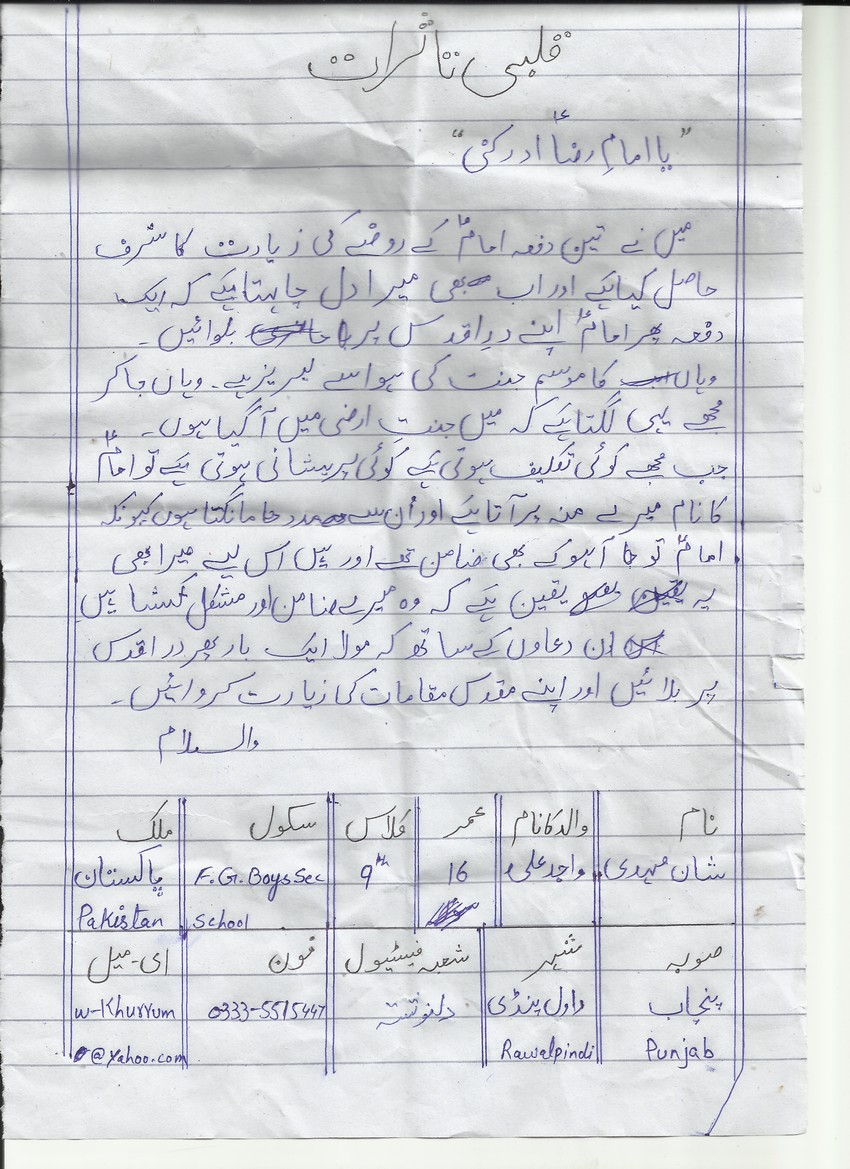 قلبی تاثرات
”یا امامِ رضاؑ ادرکنی“
میں نے تین دفعہ امامؑ کے روضے کی زیارت کا شرف
حاصل کیا ہے اور اب بھی میرا دل چاہتا ہے کہ ایک
دفعہ پھر امامؑ اپنے درِ اقدس پر بلوائیں۔
وہاں کا موسم جنت کی ہوا سے لبریز ہے۔ وہاں جا کر
مجھے یہی لگتا ہے کہ میں جنتِ ارضی میں آگیا ہوں۔
جب مجھے کوئی تکلیف ہوتی ہے کوئی پریشانی ہوتی ہے تو امامؑ
کا نام میرے منہ پر آتا ہے اور اُن سے مدد مانگتا ہوں کیونکہ
امامؑ تو آہو کے بھی ضامن تھے اور ہیں اس لیے میرا بھی
یہ یقین ہے کہ وہ میرے ضامن اور مشکل کشا ہیں
ان دعاوں کے ساتھ کہ مولا ایک بار پھر در اقدس
پر بلائیں اور اپنے مقدس مقامات کی زیارت کروائیں۔
والسلام
نام والد کا نام عمر کلاس سکول ملک
شان مہدی واجد علی 16 9th F.G.Boys Sec پاکستان
School Pakistan
صوبہ شہر شعبہ فیسٹیول فون ای-میل
پنجاب راولپنڈی دلنوشتہ 0333-5515447 w-Khurrum
Punjab Rawalpindi @yahoo.com